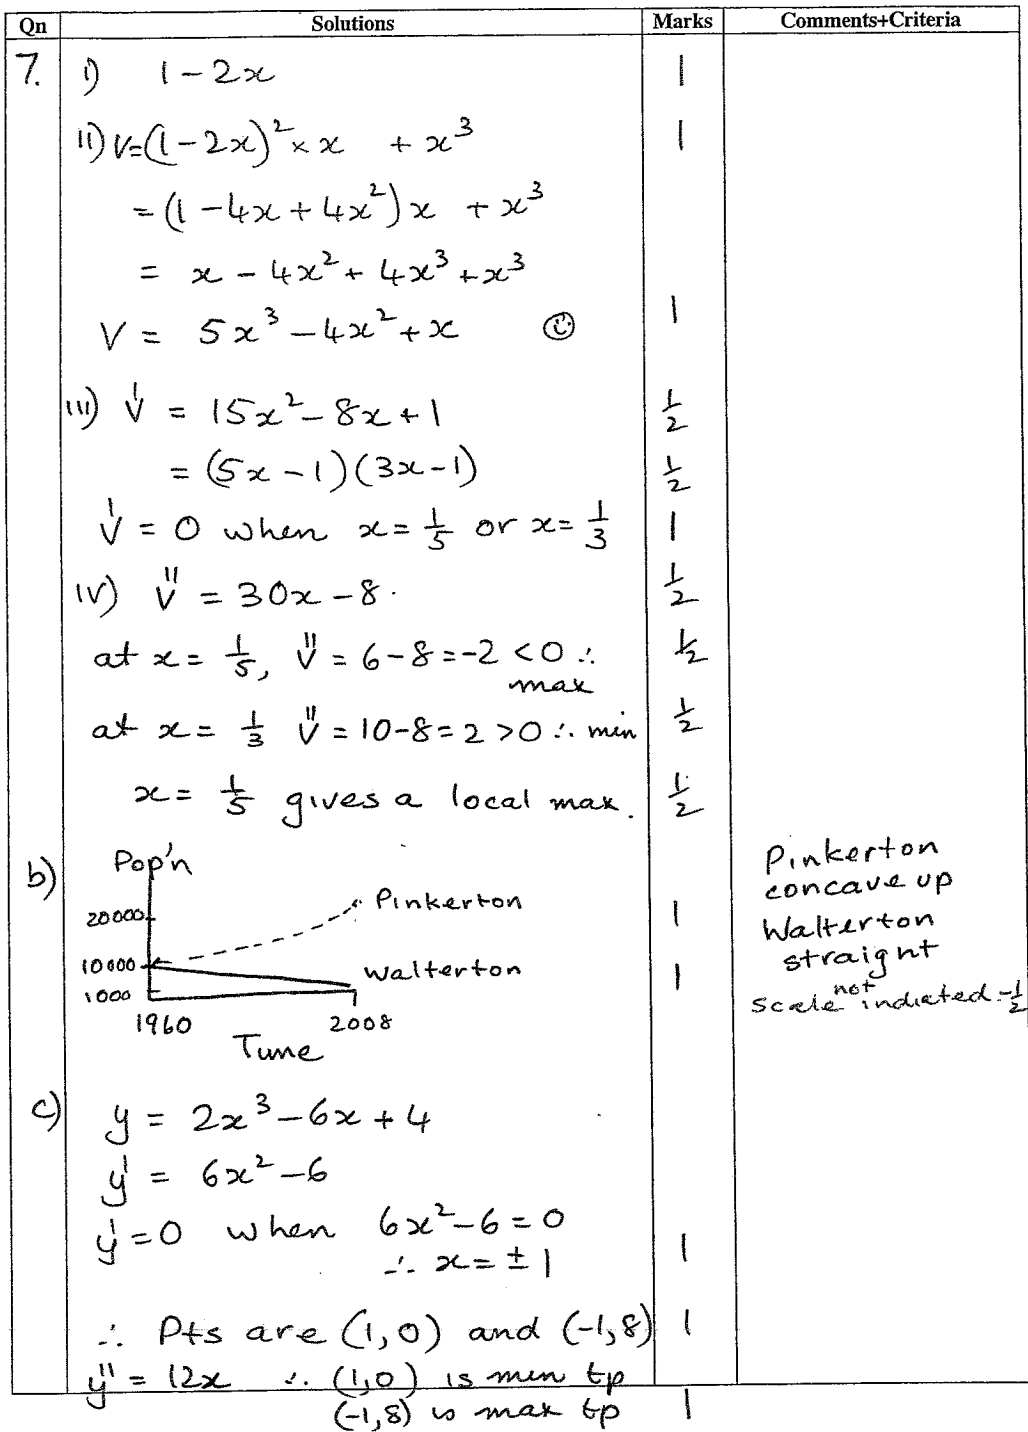 Qn Solutions Marks Comments+Criteria
7. i) 1 - 2x 1
ii) V=(1-2x)² × x + x³ 1
= (1-4x+4x²)x + x³
= x - 4x² + 4x³ + x³
V = 5x³ - 4x² + x ☺ 1
iii) V' = 15x² - 8x + 1 ½
= (5x-1)(3x-1) ½
V' = 0 when x = 1/5 or x = 1/3 1
iv) V'' = 30x - 8. ½
at x = 1/5, V'' = 6-8 = -2 < 0 ∴ ½
max
at x = 1/3 V'' = 10-8 = 2 > 0 ∴ min ½
x = 1/5 gives a local max. ½
b) Pop'n
20000
10000
1000
1960 2008
Time
Pinkerton 1
Walterton 1
Pinkerton
concave up
Walterton
straight
Scale not indiated -½
c) y = 2x³ - 6x + 4
y' = 6x² - 6
y' = 0 when 6x² - 6 = 0
∴ x = ± 1 1
∴ Pts are (1,0) and (-1,8) 1
y'' = 12x ∴ (1,0) is min tp
(-1,8) is max tp 1